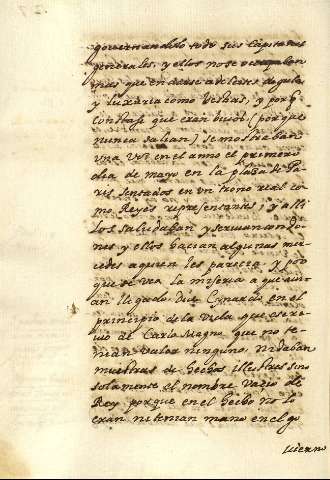 governandolo todo sus capitanes
generales, y ellos no se ocupaban
mas que en darse a deleites de gula
y luxuria como bestias, y porq
conozca que eran buios, (porque
nunca salian) se mostraban
una vez en el anno el primero
dia de mayo en la plaza de Pa
ris sentados en un trono real co
mo Reyes representantes; y alli
los saludaban y servian con do
nes y ellos hacian algunas mer
cedes a quien les parecia y por
que se vea la miseria a que avi
an llegado dice Eynardo en el
principio de la Vida que escre
vio de Carlo Magno que no te
nian valor ninguno, ni daban
muestras de hechos illustres sino
solamente el nombre vacio de
Rey porque en el hecho no lo
eran ni tenian mano en el go
vierno